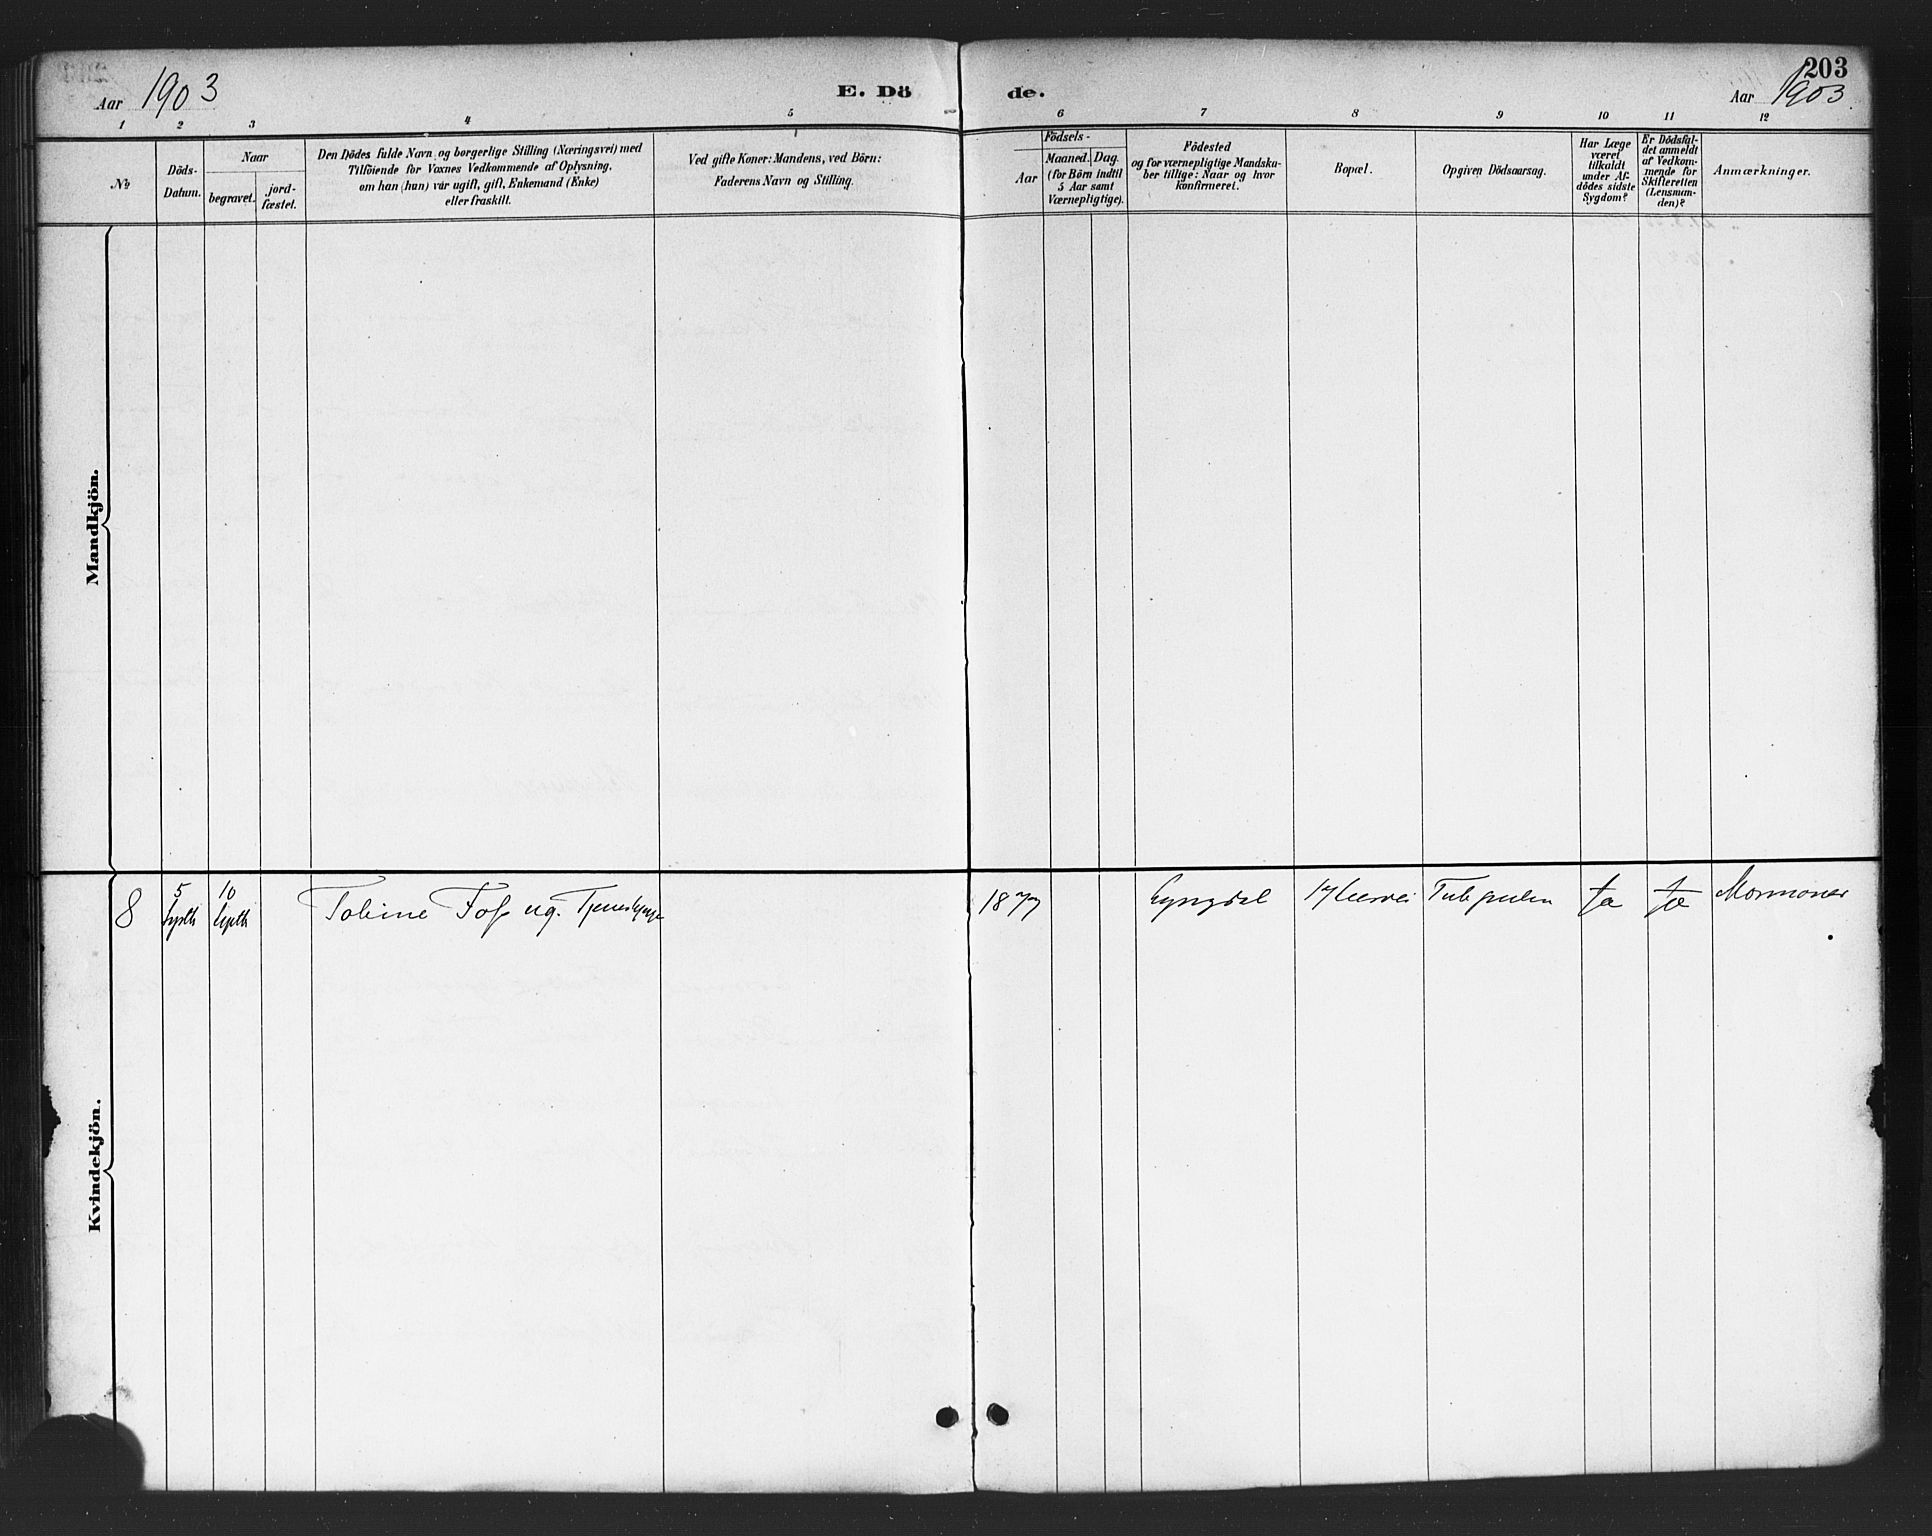 203
Aar 1903
E. Dö
de.
Aar 1903
1 2 3 4 5 6 7 8 9 10 11 12
No
Döds-
Datum.
Naar
begravet.
jord-
fæstet.
Den Dödes fulde Navn og borgerlige Stilling (Næringsvei) med
Tilföiende for Voxnes Vedkommende af Oplysning,
om han (hun) var ugift, gift, Enkemand (Enke)
eller fraskilt.
Ved gifte Koner: Mandens, ved Börn:
Faderens Navn og Stilling.
Födsels-
Aar
Maaned. Dag.
(for Börn indtil
5 Aar samt
Værnepligtige).
Födested
og for værnepligtige Mandska-
ber tillige: Naar og hvor
konfirmeret.
Bopæl.
Opgiven Dödsaarsag.
Har Læge
været
tilkaldt
under Af-
dödes sidste
Sygdom?
Er Dödsfal-
det anmeldt
af Vedkom-
mende for
Skifteretten
(Lensman-
den)?
Anmærkninger.
Mandkjön.
Kvindekjön.
8
5
Septb
10
Septb
Tobine Foss ug. Tjenestepige
1877
Lyngdal
17
Ja
Ja
Mormoner